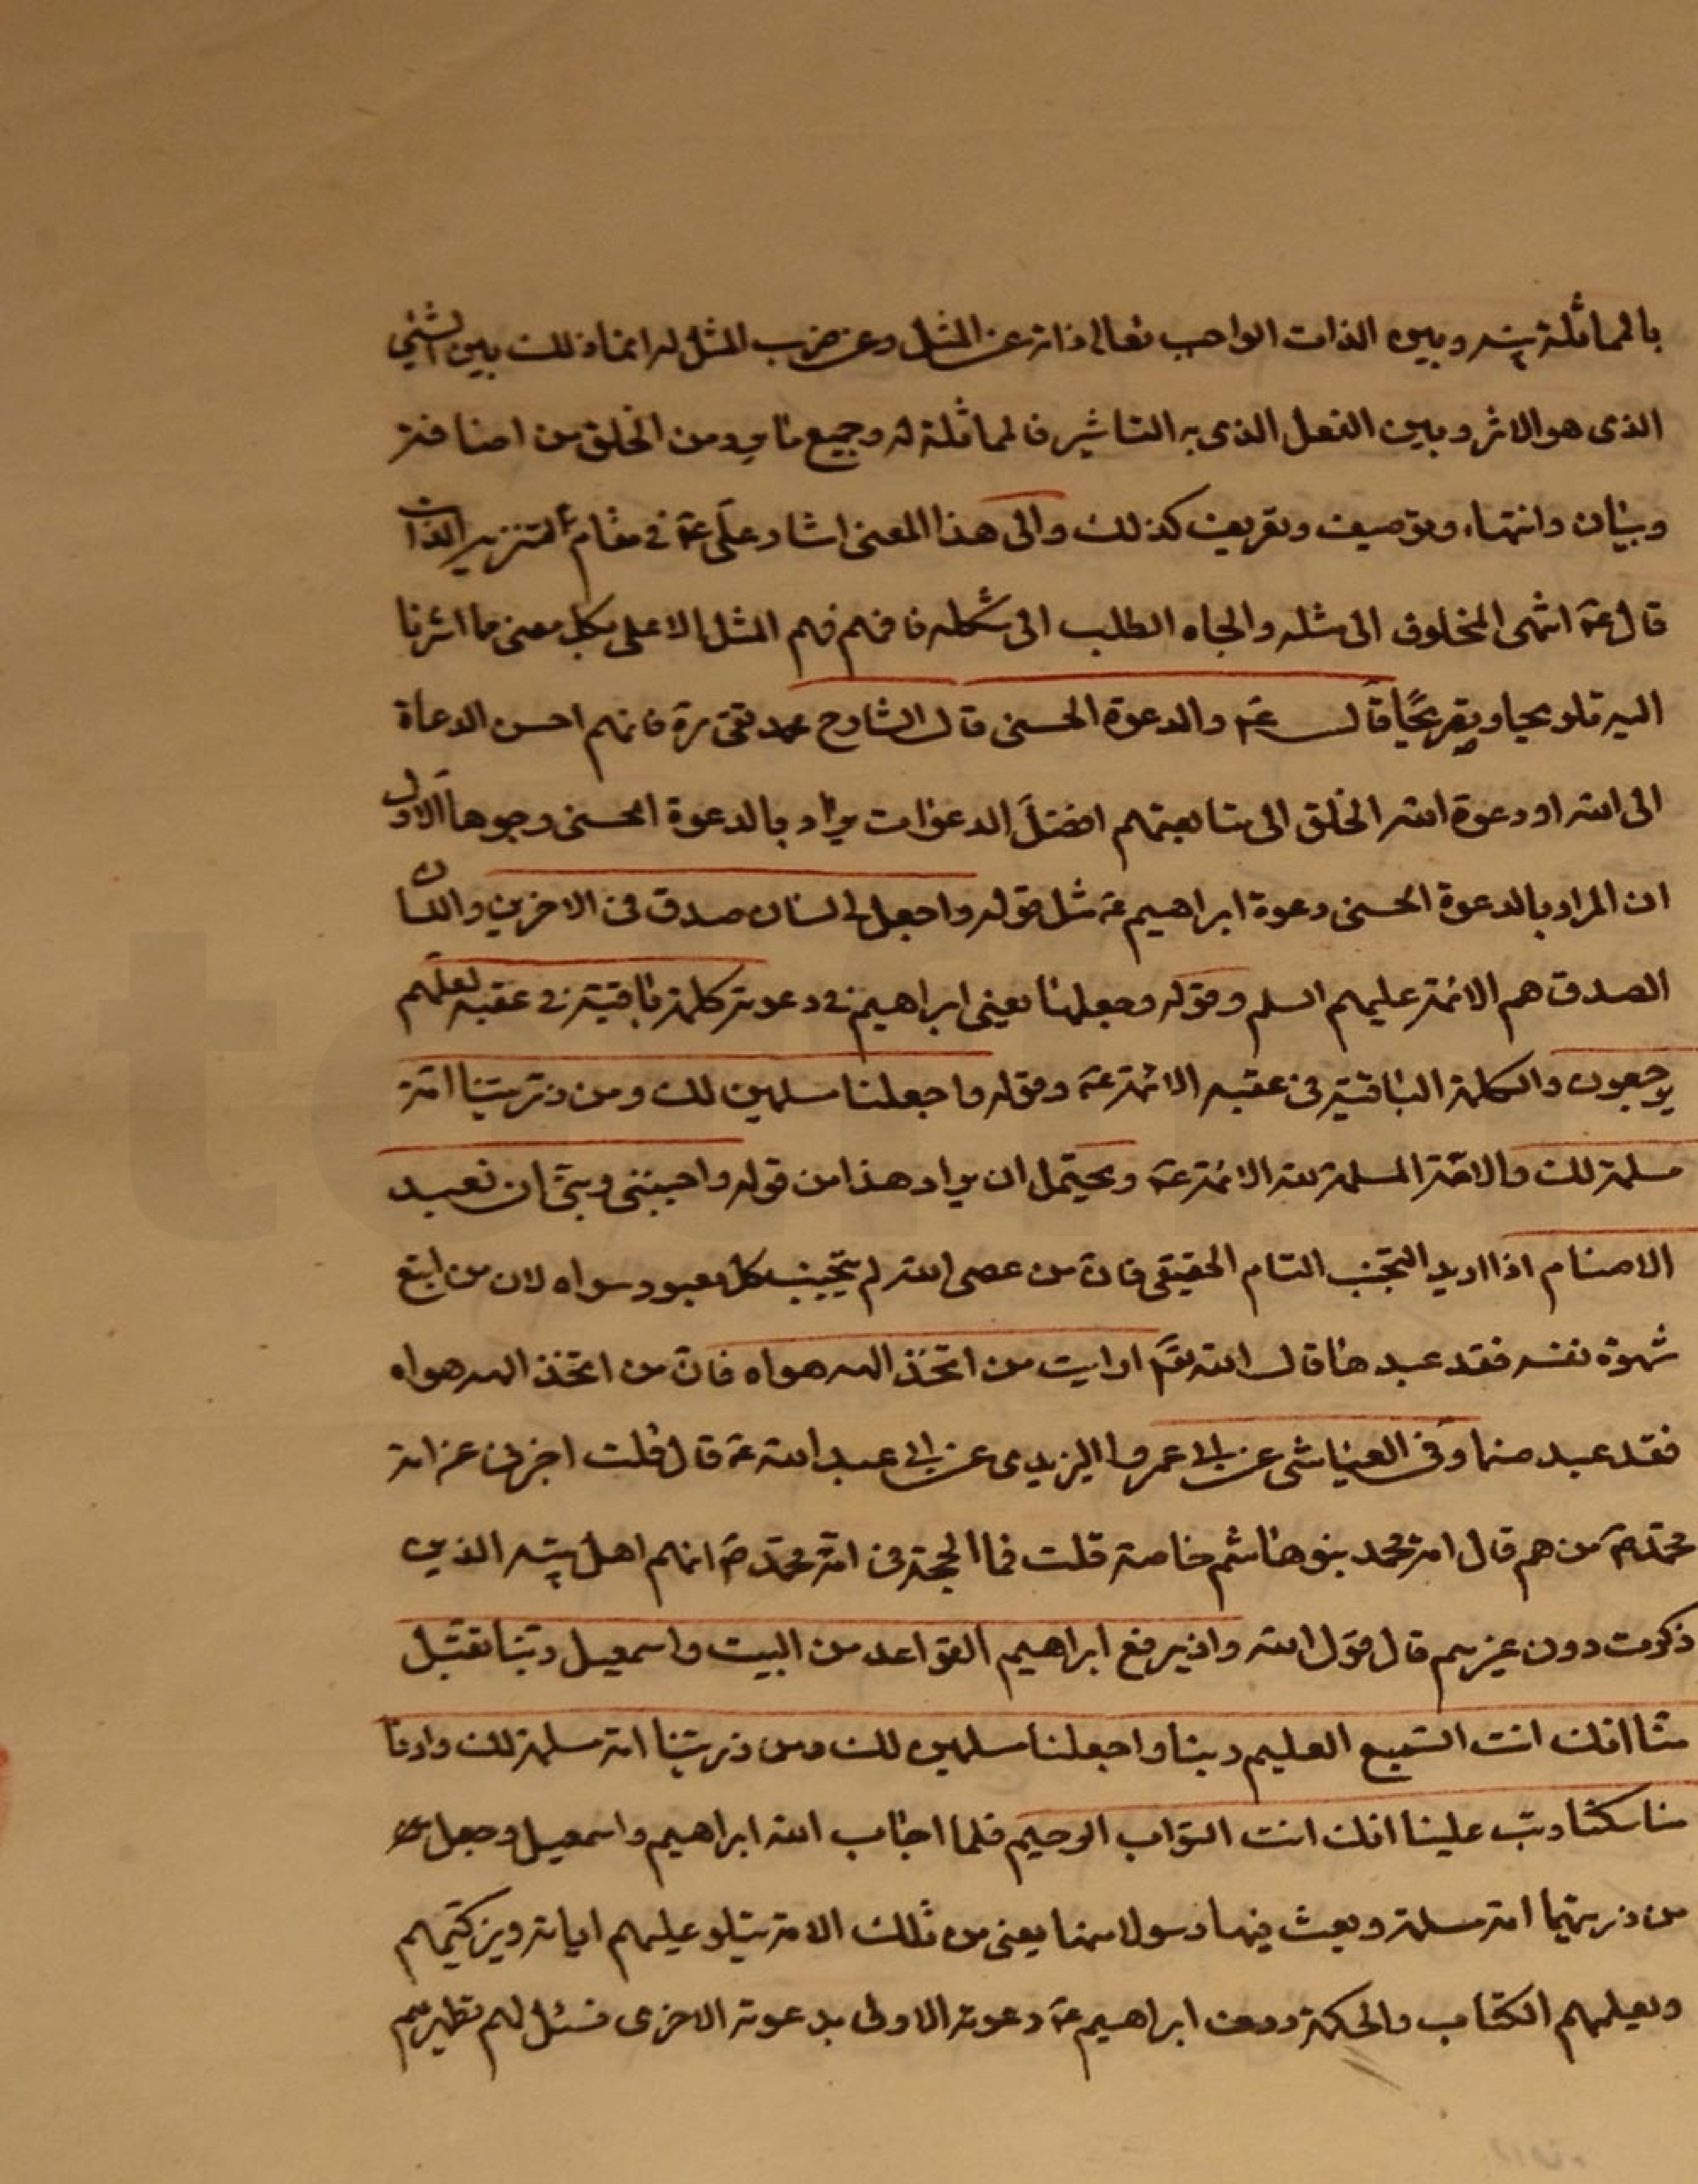 بالمماثلة بينه وبين الذات الواجب تعالى ذاته عن المثل وعن ضرب المثل له انما ذلك بين الشئ
الذى هو الاثر وبين الفعل الذى به التاثير فالمماثلة له وجميع ما يرد من الخلق من اضافة
وبيان وانتهاء وتوصيف وتعريف كذلك والى هذا المعنى اشار على عم فى مقام التنزيه الذات
قال عم انتهى المخلوق الى مثله والجاه الطلب الى شكله فافهم فهم المثل الاعلى بكل معنى مما اشرنا
اليه تلويحا وتصريحا قال عم والدعوة الحسنى قال الشارح محمد تقى ره فانهم احسن الدعاة
الى الله او دعوة الله الخلق الى متابعتهم افضل الدعوات يراد بالدعوة الحسنى وجوها الاول
ان المراد بالدعوة الحسنى دعوة ابراهيم عم مثل قوله واجعل لى لسان صدق فى الاخرين واللسان
الصدق هم الائمة عليهم السلم وقوله وجعلها يعنى ابراهيم فى دعوته كلمة باقية فى عقبه لعلهم
يرجعون والكلمة الباقية فى عقبه الائمة عم وقوله واجعلنا مسلمين لك ومن ذريتنا امة
مسلمة لك والامة المسلمة لله الائمة عم ويحتمل ان يراد هذا من قوله واجنبنى وبنى ان نعبد
الاصنام اذا اريد التجنب التام الحقيقى فان من عصى الله لم يتجنب كل معبود سواه لان من اتبع
شهوة نفسه فقد عبدها قال الله تع ارايت من اتخذ الهه هواه فان من اتخذ الهه هواه
فقد عبد صنما وفى العياشى عن ابى عمرو الزبيدى عن ابى عبد الله عم قال قلت اخبرنى عن امة
محمد ص من هم قال امة محمد بنو هاشم خاصة قلت فما الحجة فى امة محمد ص انهم اهل بيته الذين
ذكرت دون غيرهم قال قول الله واذ يرفع ابراهيم القواعد من البيت واسمعيل ربنا تقبل
منا انك انت السميع العليم ربنا واجعلنا مسلمين لك ومن ذريتنا امة مسلمة لك وارنا
مناسكنا وتب علينا انك انت التواب الرحيم فلما اجاب الله ابراهيم واسمعيل وجعل
من ذريتهما امة مسلمة وبعث فيها رسولا منها يعنى من تلك الامة يتلو عليهم اياته ويزكيهم
ويعلمهم الكتاب والحكمة ردف ابراهيم عم دعوته الاولى بدعوته الاخرى فسئل لهم تطهيرهم